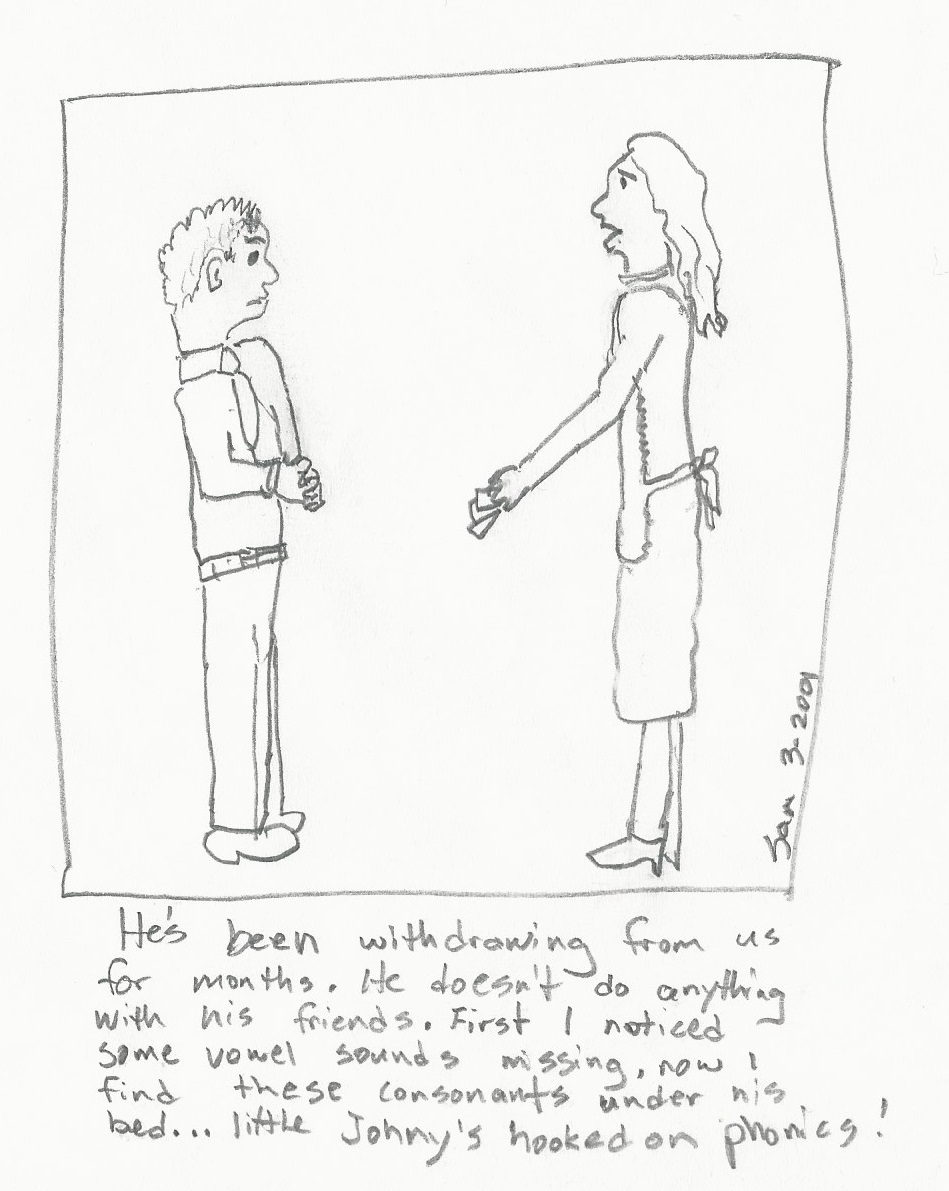 Sam 3-2001
He's been withdrawing from us
for months. He doesn't do anything
with his friends. First I noticed
some vowel sounds missing, now I
find these consonants under his
bed... little Johny's hooked on phonics!